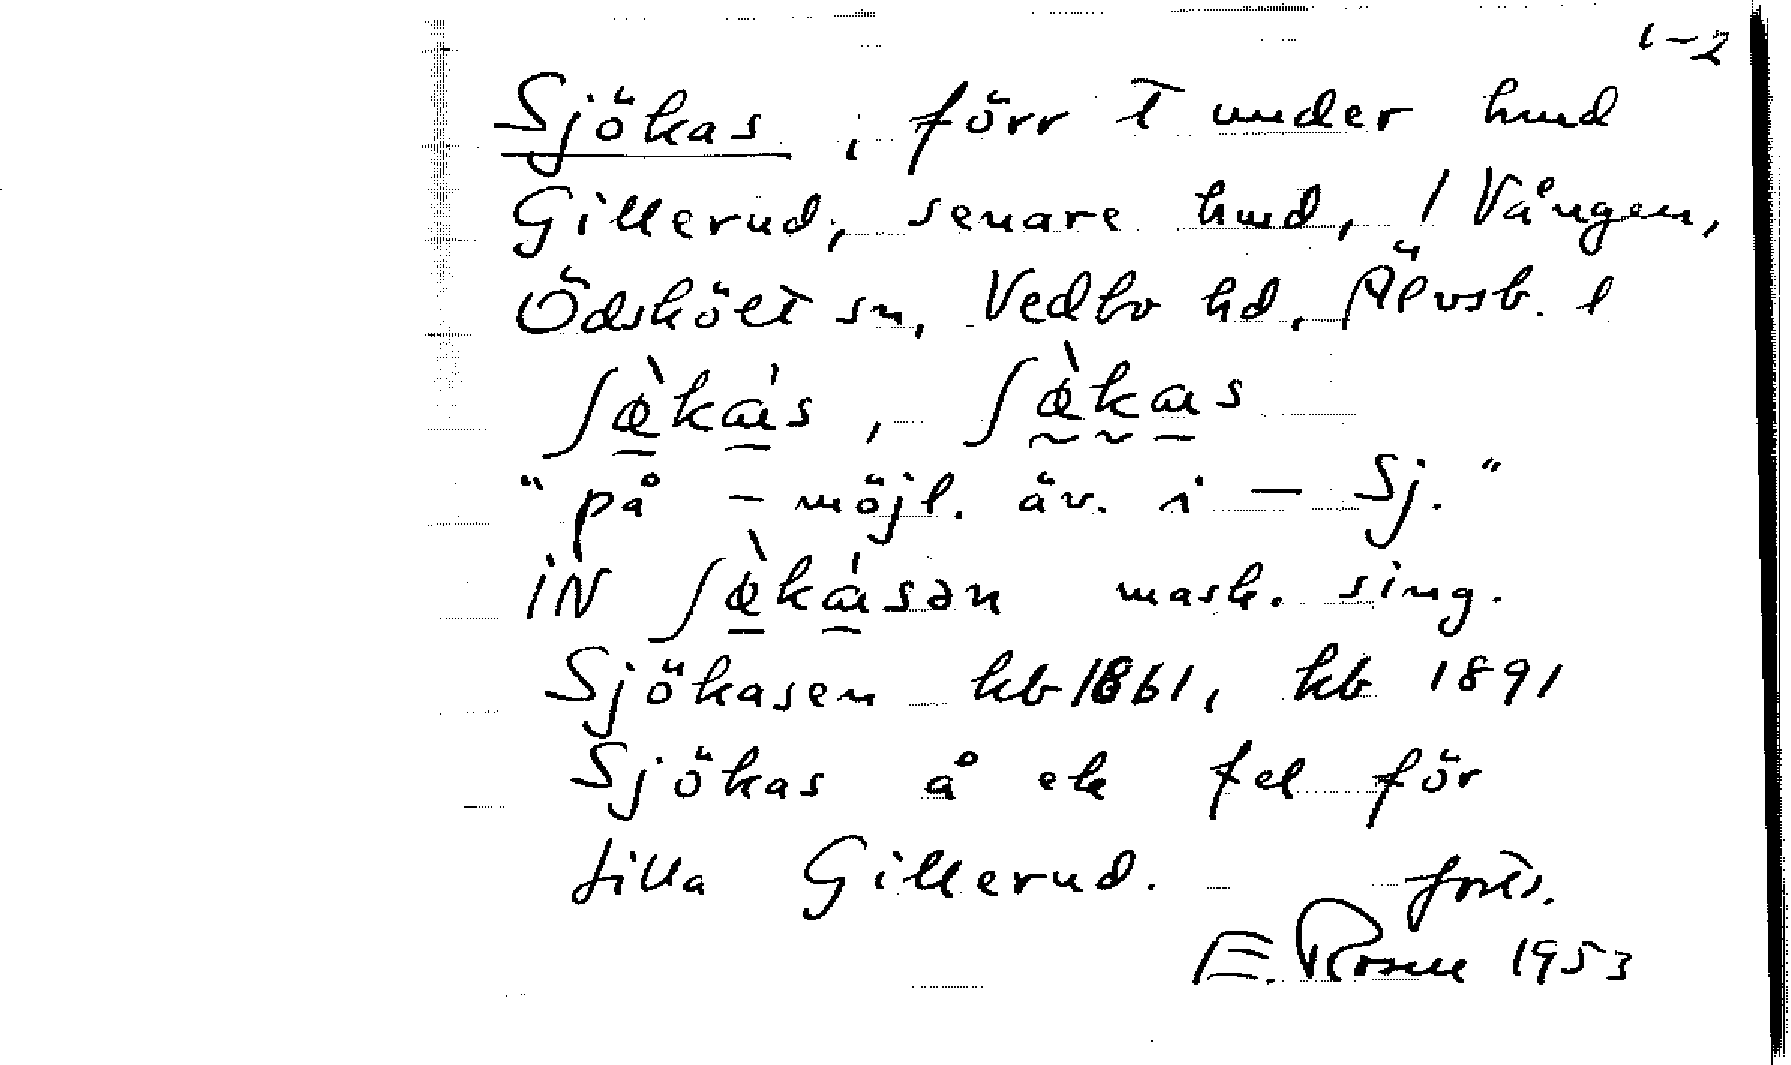 1-2
Sjökas, förr T under hmd
Gillerud, senare hmd, / Vången,
Ödsköelt sn, Vedbo hd, Älvsb. l
ʃœ̀kɑ́s, ʃœ̀kɑs
"på - möjl. äv. i - Sj."
iN ʃœ̀kɑ́sən mask. sing.
Sjökasen kb 1861, kb 1891
Sjökas å ek fel för
Lilla Gillerud. forts.
E. Rosell 1953